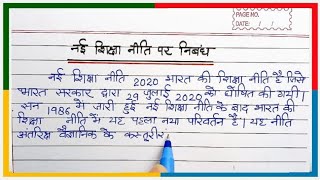 PAGE NO.
DATE: / /
नई शिक्षा नीति पर निबंध
नई शिक्षा नीति 2020 भारत की शिक्षा नीति है जिसे
भारत सरकार द्वारा 29 जुलाई 2020 को घोषित की गयी।
सन 1986 में जारी हुई नई शिक्षा नीति के बाद भारत की
शिक्षा नीति में यह पहला नया परिवर्तन है। यह नीति
अंतरिक्ष वैज्ञानिक के कस्तूरीर